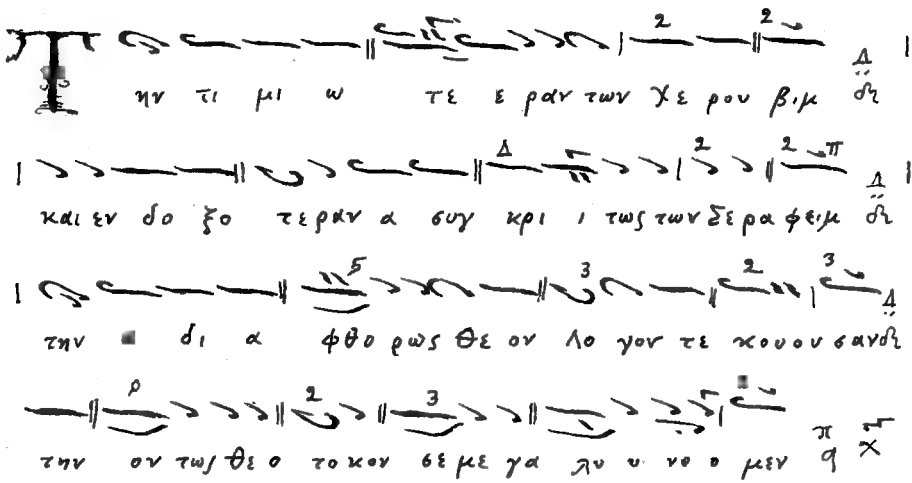 Την τι μι ω τε ε ραν των Χε ρου βιμ
και εν δο ξο τε ραν α συγ κρι ι τως των Σε ρα φειμ
την δι α φθο ρως θε ον λο γον τε κου ου σαν
την ον τως θε ο το κον σε με γα λυ υ νο ο μεν